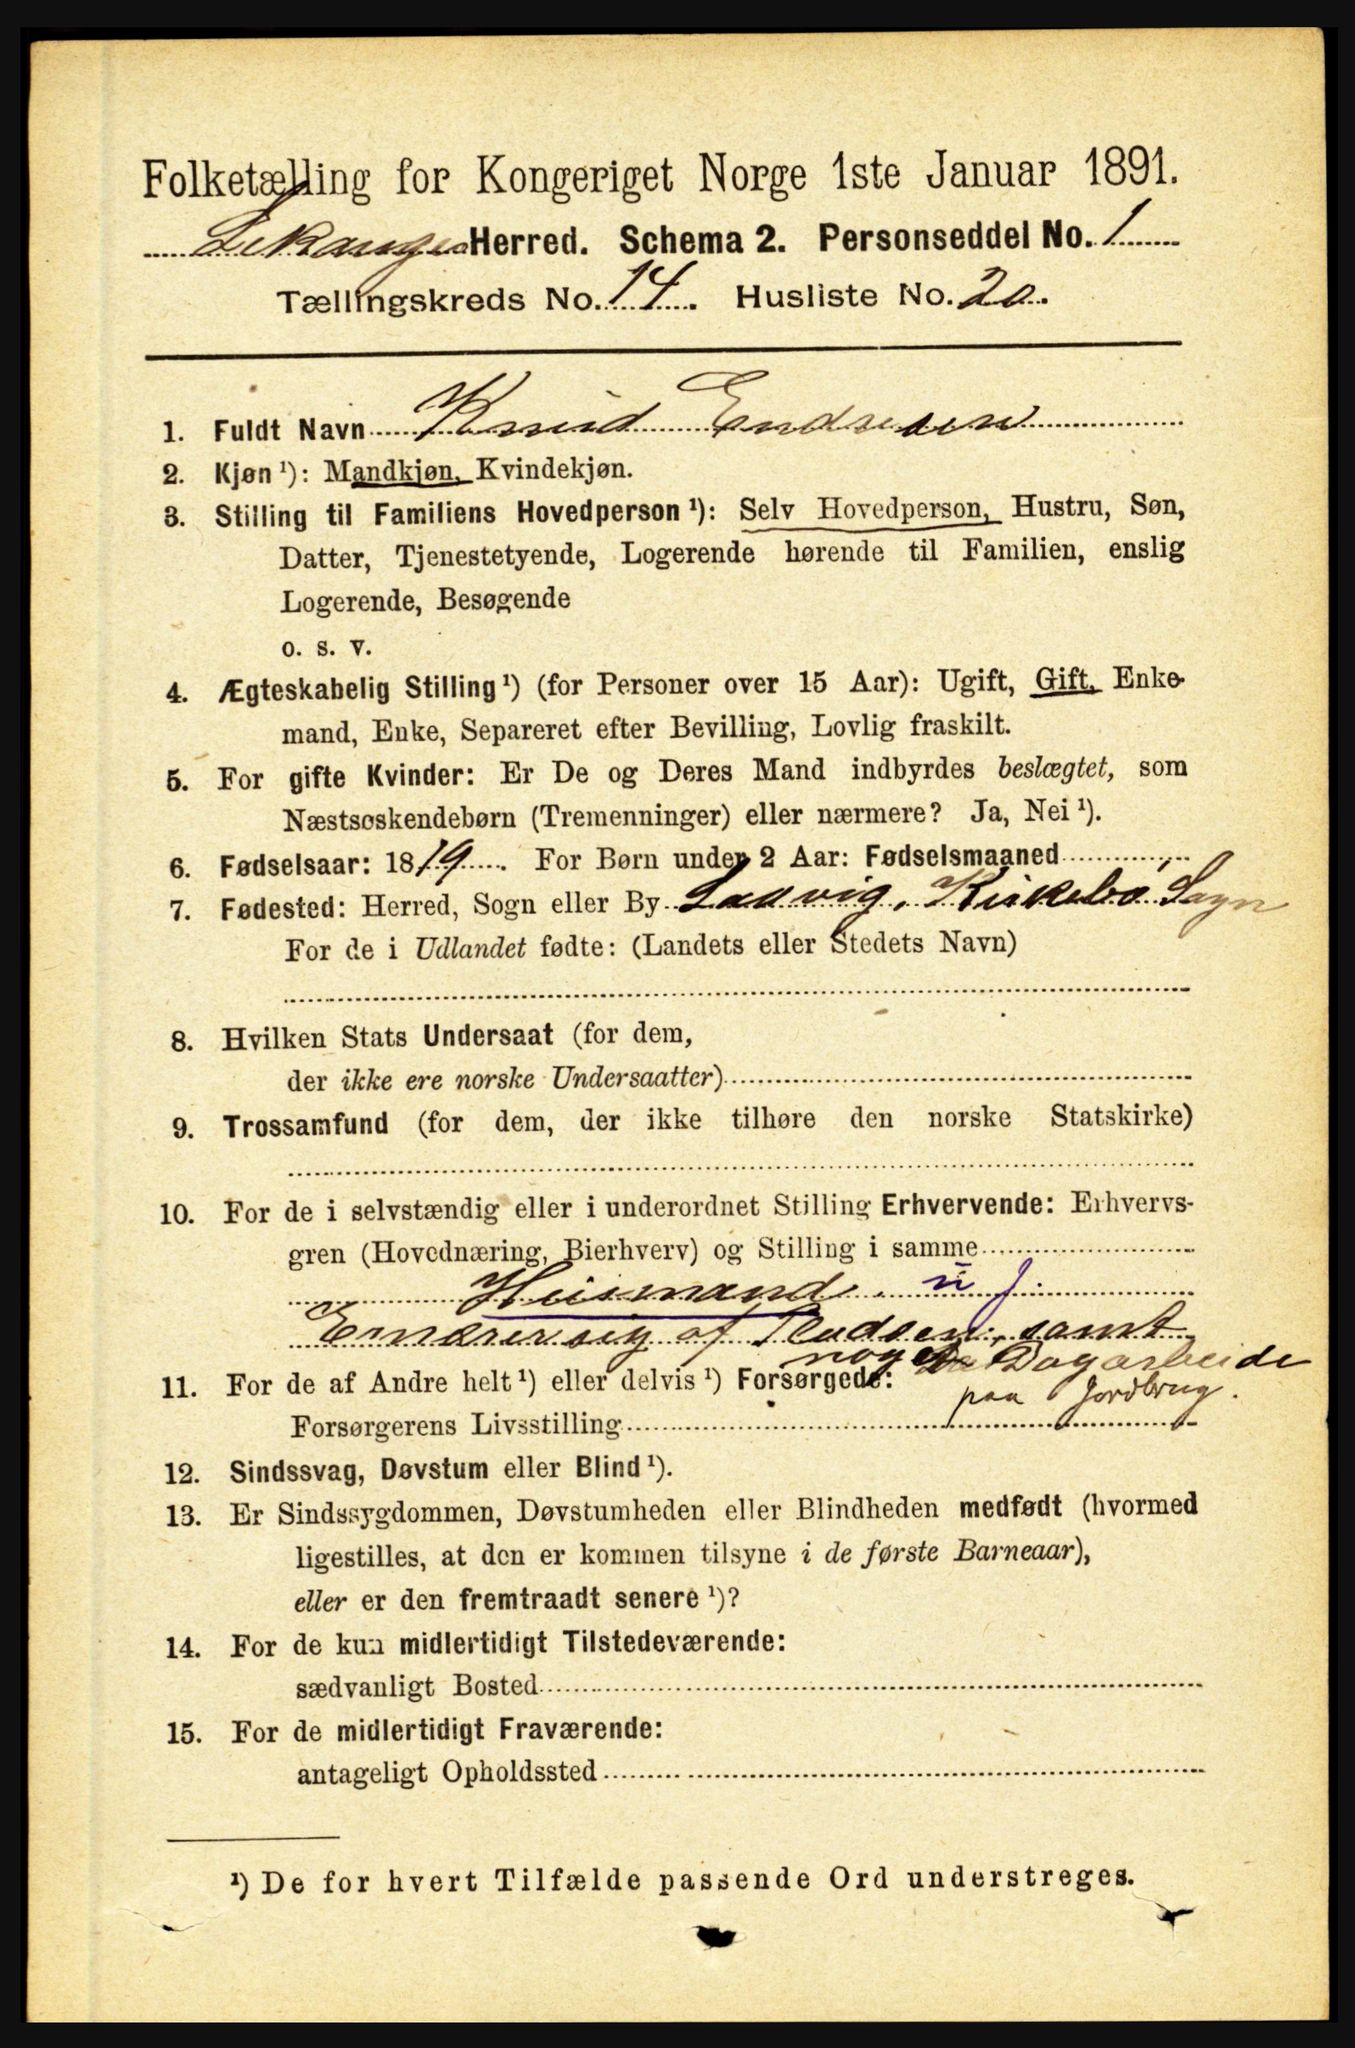 Folketælling for Kongeriget Norge 1ste Januar 1891.
Lekanger Herred. Schema 2. Personseddel No. 1
Tællingskreds No. 14. Husliste No. 20.
1. Fuldt Navn Knud Endresen
2. Kjøn ¹): Mandkjøn, Kvindekjøn.
3. Stilling til Familiens Hovedperson ¹): Selv Hovedperson, Hustru, Søn,
Datter, Tjenestetyende, Logerende hørende til Familien, enslig
Logerende, Besøgende
o. s. v.
4. Ægteskabelig Stilling ¹) (for Personer over 15 Aar): Ugift, Gift, Enke-
mand, Enke, Separeret efter Bevilling, Lovlig fraskilt.
5. For gifte Kvinder: Er De og Deres Mand indbyrdes beslægtet, som
Næstsøskendebørn (Tremenninger) eller nærmere? Ja, Nei ¹).
6. Fødselsaar: 1819. For Børn under 2 Aar: Fødselsmaaned
7. Fødested: Herred, Sogn eller By Ladvig, Kirkebø Sogn
For de i Udlandet fødte: (Landets eller Stedets Navn)
8. Hvilken Stats Undersaat (for dem,
der ikke ere norske Undersaatter)
9. Trossamfund (for dem, der ikke tilhøre den norske Statskirke)
10. For de i selvstændig eller i underordnet Stilling Erhvervende: Erhvervs-
gren (Hovednæring, Bierhverv) og Stilling i samme
Husmand u j.
Ernærer sig af Pladsen, samt
noget Dagarbeide
11. For de af Andre helt ¹) eller delvis ¹) Forsørgede:
paa Jordbrug.
Forsørgerens Livsstilling
12. Sindssvag, Døvstum eller Blind ¹).
13. Er Sindssygdommen, Døvstumheden eller Blindheden medfødt (hvormed
ligestilles, at den er kommen tilsyne i de første Barneaar),
eller er den fremtraadt senere ¹)?
14. For de kun midlertidigt Tilstedeværende:
sædvanligt Bosted
15. For de midlertidigt Fraværende:
antageligt Opholdssted
¹) De for hvert Tilfælde passende Ord understreges.